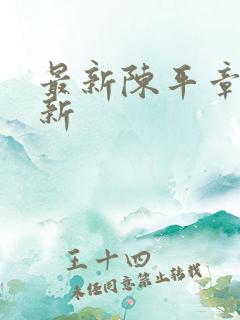 最新陈平章
新
王十四
未经同意禁止转载